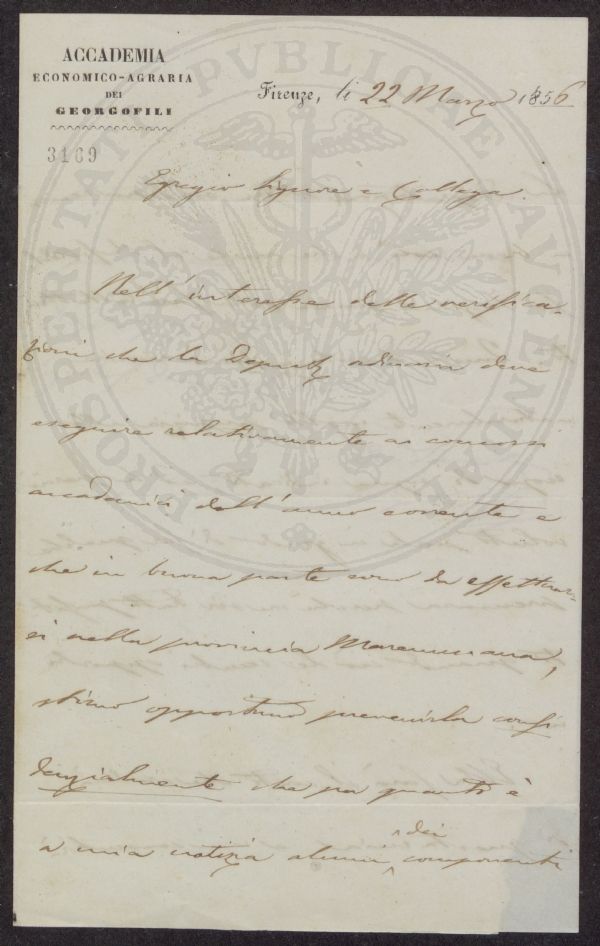 ACCADEMIA
ECONOMICO-AGRARIA
DEI
GEORGOFILI
3169
Firenze, li 22 Marzo 1856
Egregio Signore e Collega.
Nell'interesse delle verifica-
zioni che la Deputaz. deve
eseguire relativamente ai concorsi
accademici dell'anno corrente e
che in buona parte sono da effettuar
si nella provincia Maremmana,
stimo opportuno prevenirla confi
denzialmente che per quanto è
a mia notizia alcuni dei componenti
PROSPERITATI PVBLICAE AVGENDAE